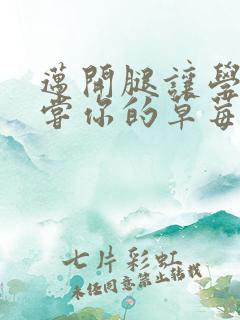 邁開腿讓學
嘗你的草莓
七片彩虹
未经同意禁止转载